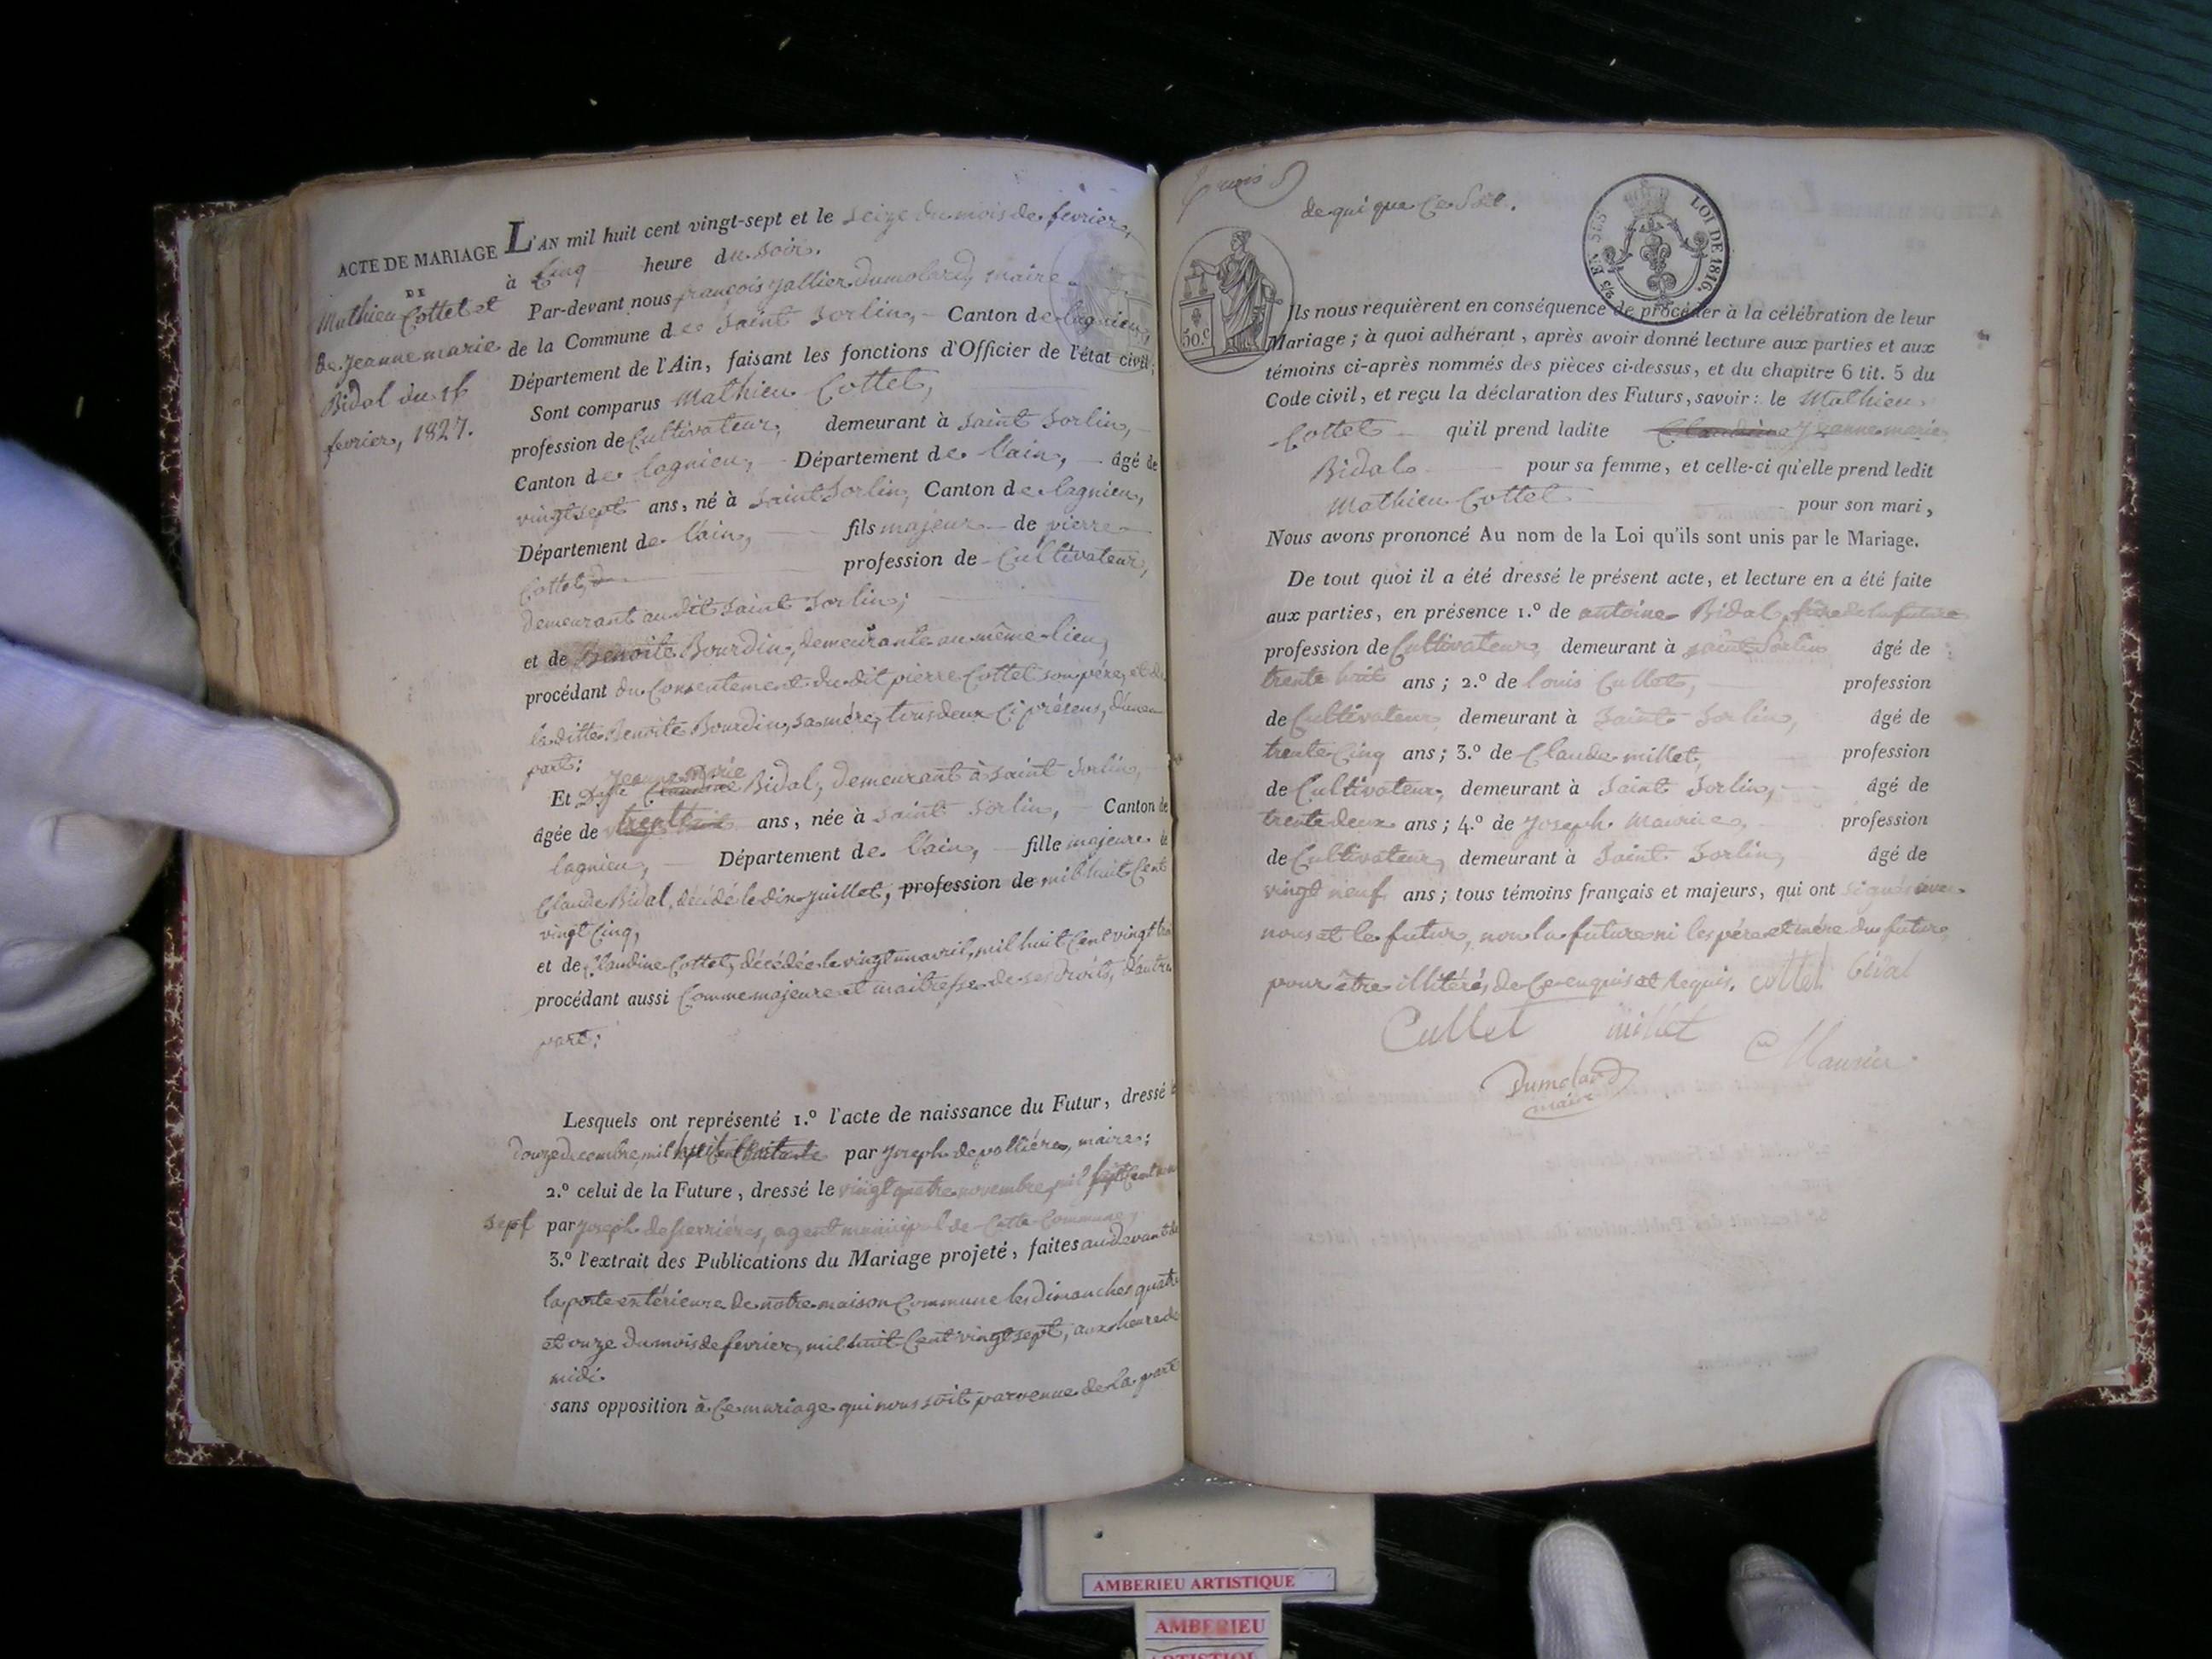 ACTE DE MARIAGE
DE
Mathieu Cottet et
de Jeanne marie
Bidal du 16
fevrier, 1827.
L'AN mil huit cent vingt-sept et le seize du mois de fevrier,
à Cinq heure du soir.
Par-devant nous françois gallien dumolard, maire
de la Commune de Saint Sorlin, Canton de lagnieu,
Département de l'Ain, faisant les fonctions d'Officier de l'état civil;
Sont comparus Mathieu Cottet,
profession de Cultivateur, demeurant à Saint Sorlin,
Canton de lagnieu, Département de l'ain, âgé de
vingt sept ans, né à Saint Sorlin, Canton de lagnieu,
Département de l'ain, fils majeur de pierre
Cottet, profession de Cultivateur,
demeurant audit Saint Sorlin;
et de Benoite Bourdin, demeurante au même lieu,
procédant du Consentement du dit pierre Cottet son père, et de
la ditte Benoite Bourdin, sa mère, tous deux Ci présens, d'une
part;
Et Delle Jeanne Marie Bidal, demeurant à Saint Sorlin,
âgée de ans, née à Saint Sorlin, Canton de
lagnieu, Département de l'ain, fille majeure de
Claude Bidal, décédé le dix juillet, profession de mil huit Cent
vingt Cinq,
et de Claudine Cottet, décédée le vingt un avril, mil huit Cent vingt
procédant aussi Comme majeure et maitresse de ses droits, d'autre
part;
Lesquels ont représenté 1.º l'acte de naissance du Futur, dressé le
douze decembre, mil par Joseph maire;
2.º celui de la Future, dressé le vingt quatre novembre, mil sept Cent
sept par Joseph de agent municipal de Cette Commune,
3.º l'extrait des Publications du Mariage projeté, faites au devant de
la porte extérieure de notre maison Commune les dimanches quatre
et onze du mois de fevrier, mil huit Cent vingt sept, aux heure de
midi
sans opposition à Ce mariage qui nous soit parvenue de la part
de qui que Ce Soit.
50.C
LOI DE 1816.
EN SUS
Ils nous requièrent en conséquence de procéder à la célébration de leur
Mariage; à quoi adhérant, après avoir donné lecture aux parties et aux
témoins ci-après nommés des pièces ci-dessus, et du chapitre 6 tit. 5 du
Code civil, et reçu la déclaration des Futurs, savoir: le Mathieu
Cottet qu'il prend ladite Claudine Jeanne marie
Bidal pour sa femme, et celle-ci qu'elle prend ledit
Mathieu Cottet pour son mari,
Nous avons prononcé Au nom de la Loi qu'ils sont unis par le Mariage.
De tout quoi il a été dressé le présent acte, et lecture en a été faite
aux parties, en présence 1.º de antoine Bidal, frère de la future
profession de Cultivateur, demeurant à Saint Sorlin âgé de
trente huit ans; 2.º de louis Cullet, profession
de Cultivateur demeurant à Saint Sorlin, âgé de
trente Cinq ans; 3.º de Claude millet, profession
de Cultivateur, demeurant à Saint Sorlin, âgé de
trente deux ans; 4.º de Joseph Maurier, profession
de Cultivateur, demeurant à Saint Sorlin, âgé de
vingt neuf ans; tous témoins français et majeurs, qui ont signés avec
nous et le futur, non la future ni les père et mère du futur
pour être illitérés, de Ce enquis et Requis. cottet bidal
Cullet millet Maurier
Dumolard
maire
AMBERIEU ARTISTIQUE
AMBERIEU
ARTISTIQUE